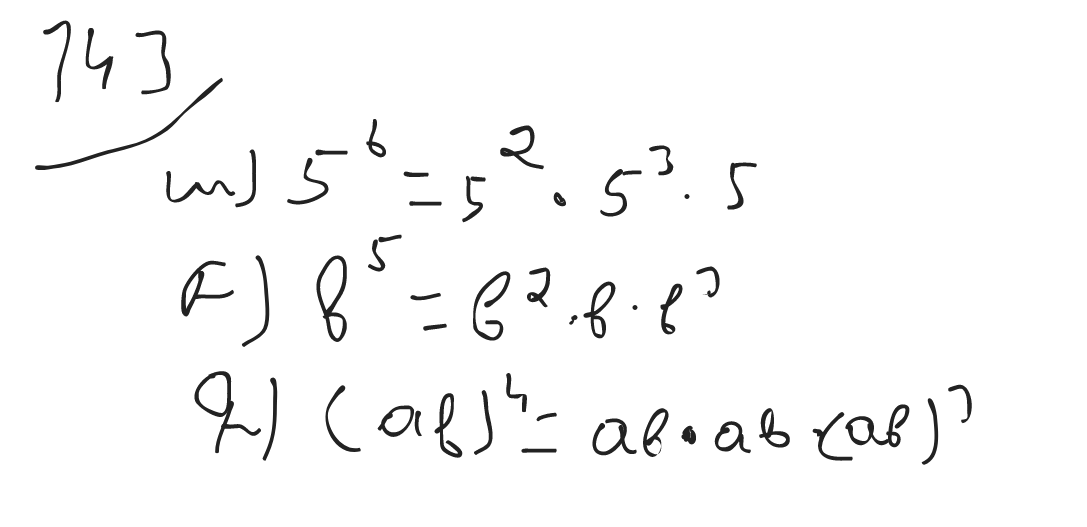 143
m) 5⁶ = 5² · 5³ · 5
F) b⁵ = b² · b · b?
2) (ab)⁴ = ab · ab · (ab)?